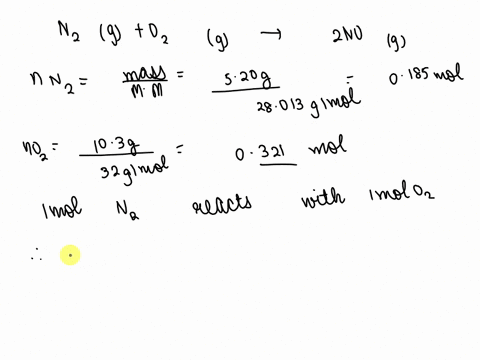 N₂ (g) + O₂ (g) → 2NO (g)
n N₂ = mass / M.M = 5.20g / 28.013 g/mol = 0.185 mol
nO₂ = 10.3g / 32g/mol = 0.321 mol
1mol N₂ reacts with 1mol O₂
∴